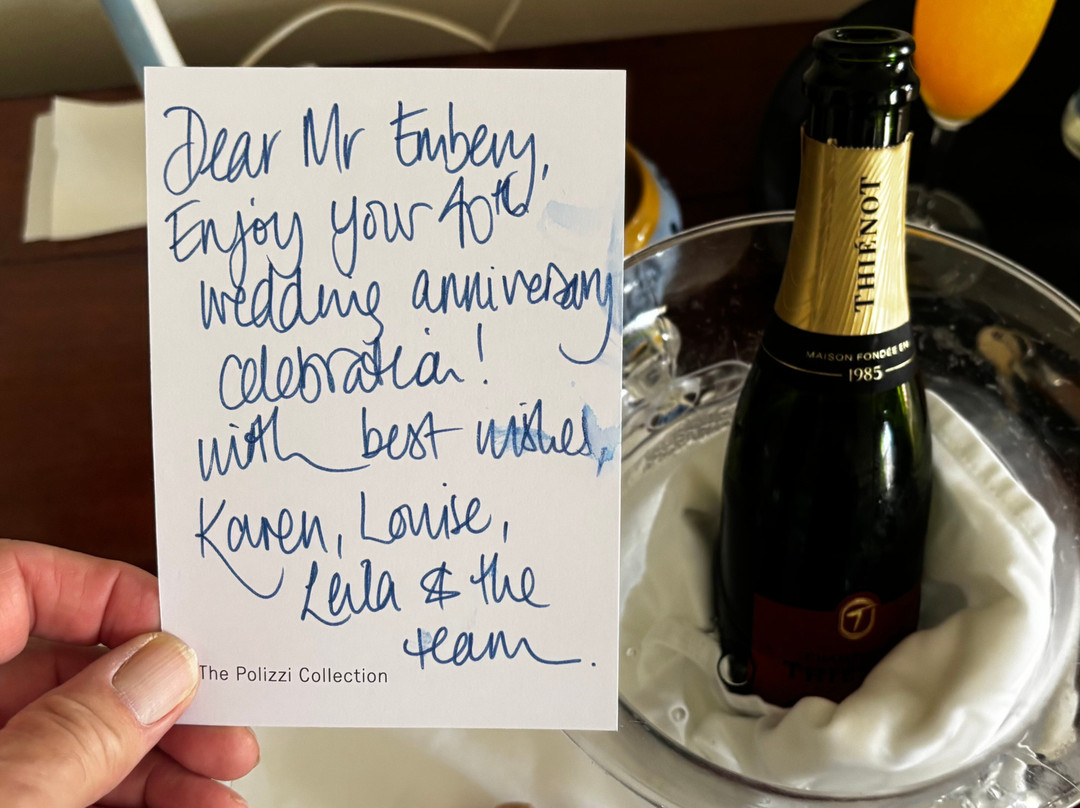 Dear Mr Embery,
Enjoy your 40th
wedding anniversary
celebration!
with best wishes,
Karen, Louise,
Leila & the
team.
The Polizzi Collection
THIÉNOT
MAISON FONDÉE EN
1985